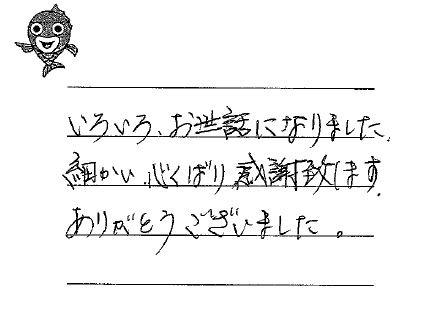 いろいろ、お世話になりました、
細かい心くばり感謝致します、
ありがとうございました。